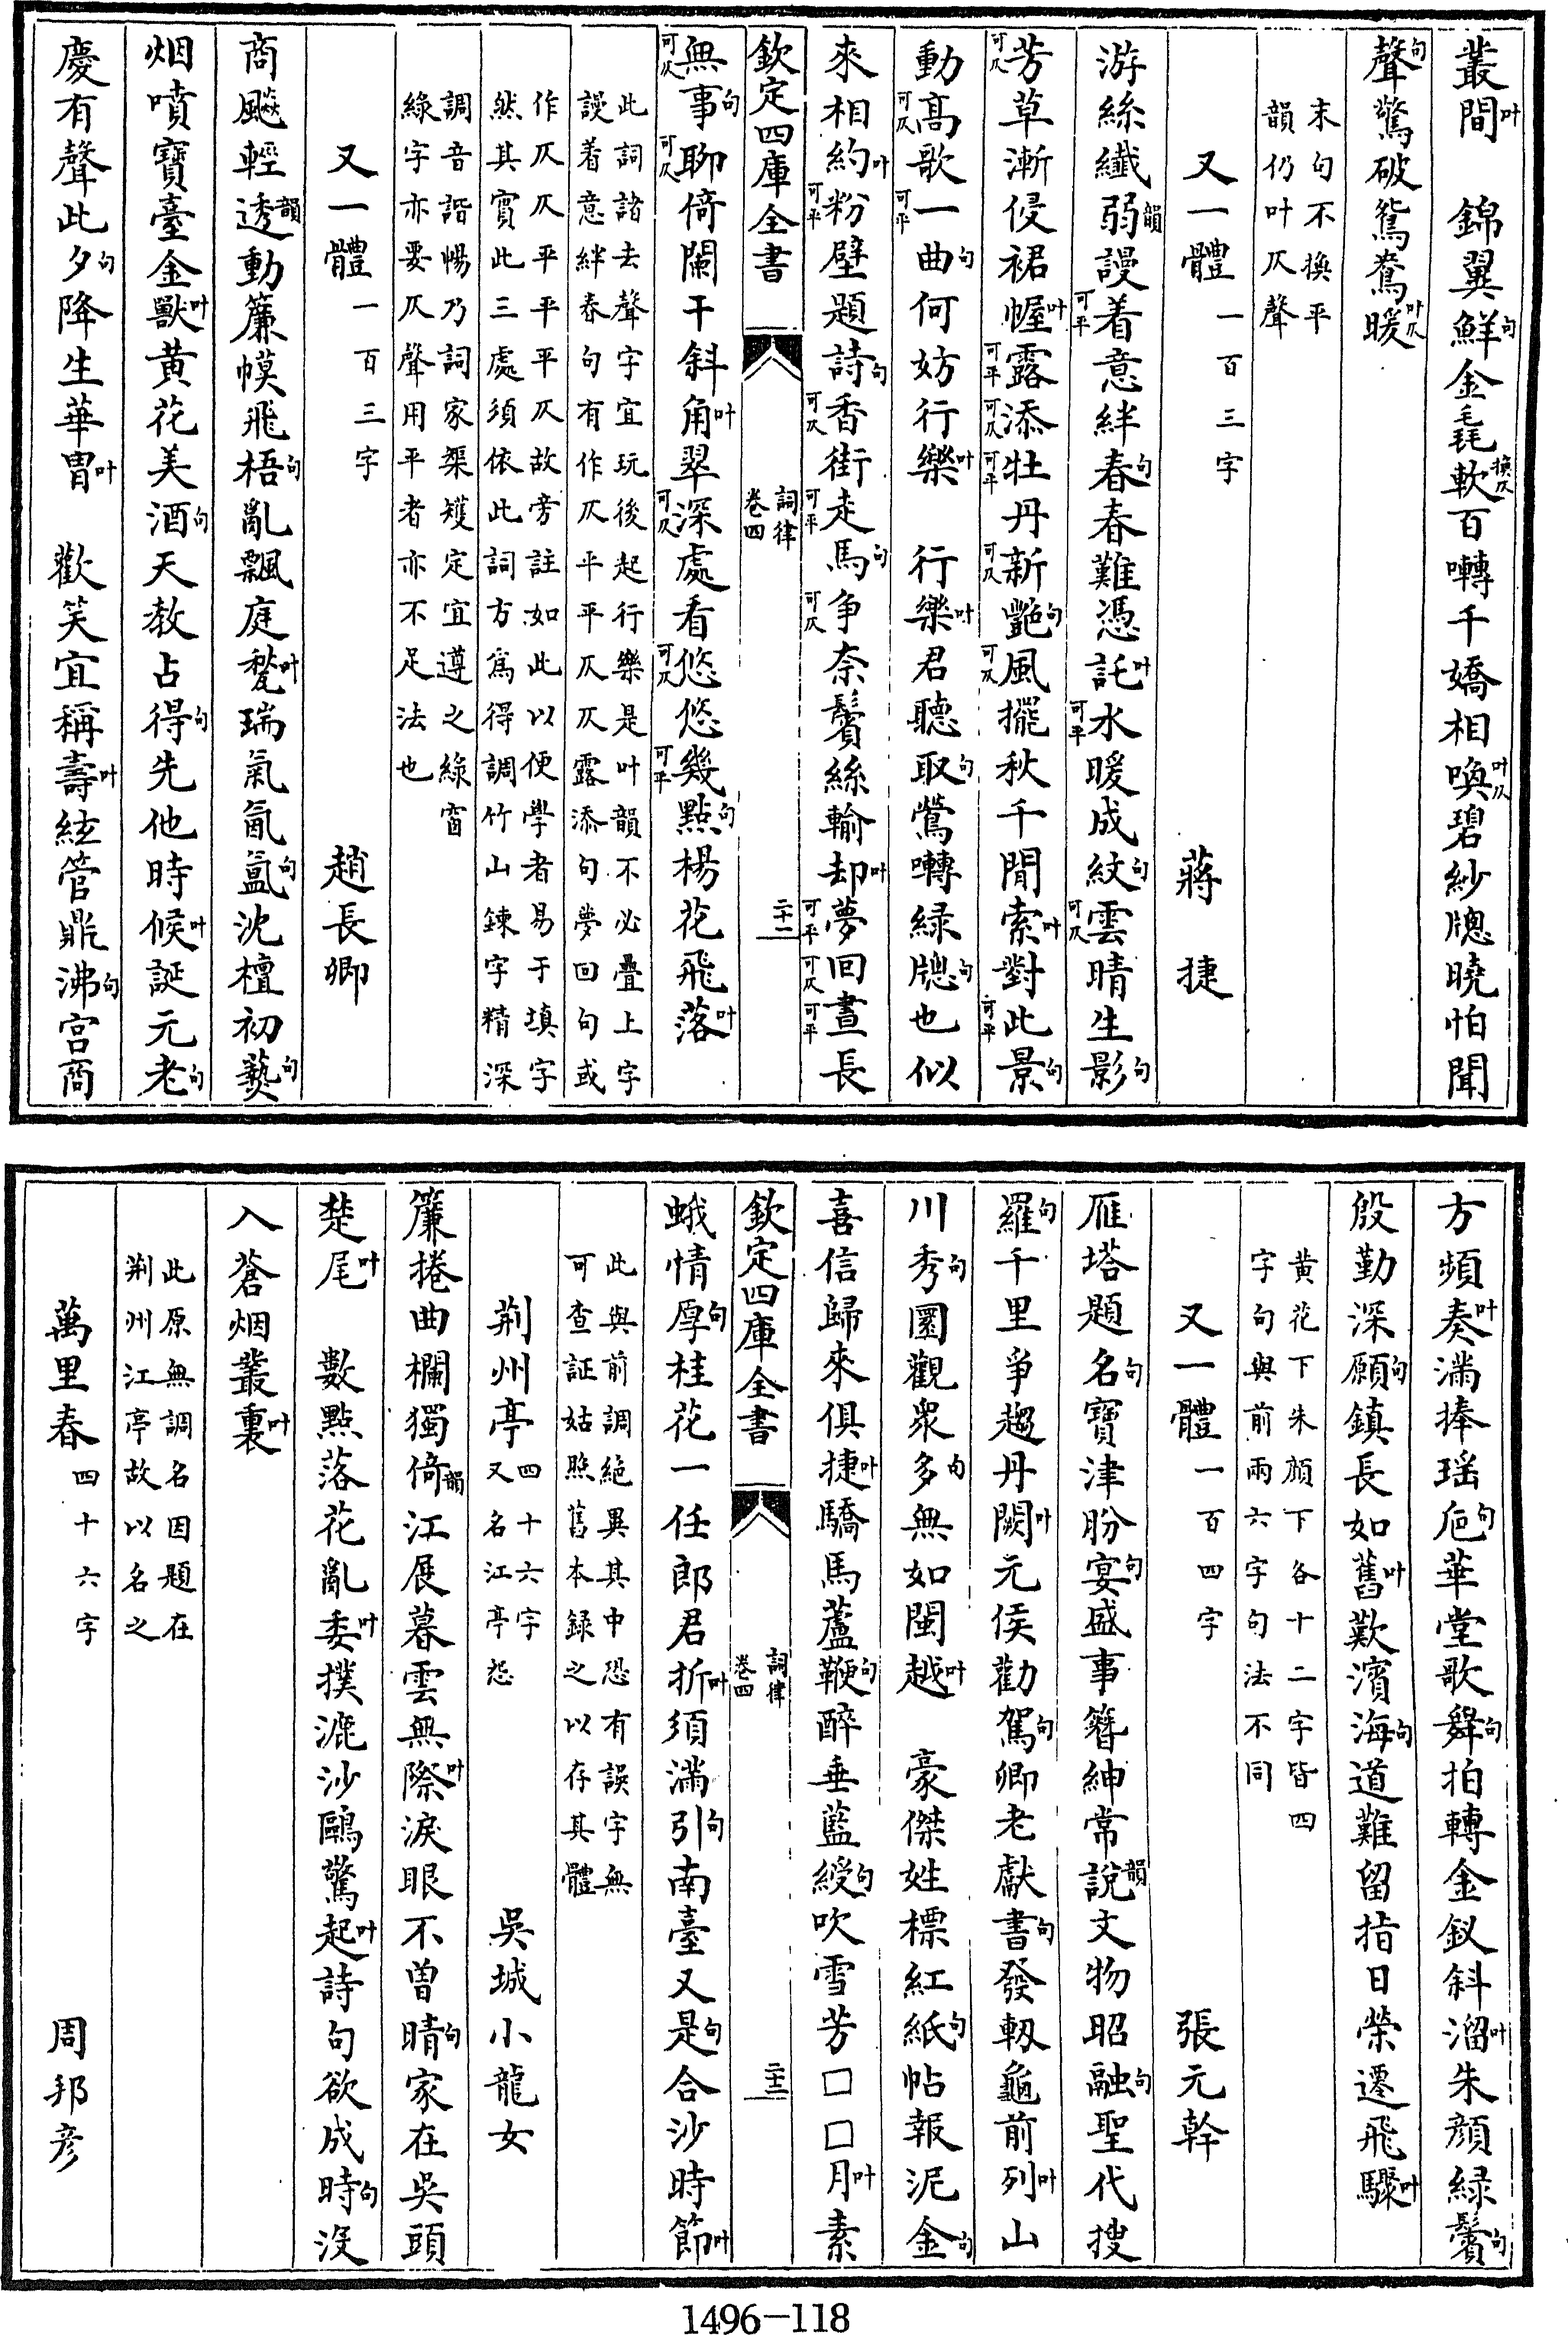 叢間叶　錦翼鮮句金毳軟換仄百囀千嬌相喚叶仄碧紗牕曉怕聞
聲句驚破鴛鴦暖叶仄
末句不換平
韻仍叶仄聲
又一體一百三字　蔣捷
游絲纖弱韻謾着可平意絆春句春難憑託叶水可平暖成紋句雲可仄晴生影句
芳可仄草漸侵裙幄叶露可平添可仄牡可平丹新可仄艷句風可仄擺秋千閒索叶對此可平景句
動高可仄歌一可平曲句何妨行樂叶　行樂叶君聽取句鶯囀綠牕句也似
來相約叶粉可平壁題詩句香可仄街走可平馬句爭可仄奈鬢絲輸却叶夢可平回可仄晝可平長
欽定四庫全書　詞律卷四　二十一
無可仄事句聊可仄倚闌干斜角叶翠深可仄處看悠可仄悠幾可平點句楊花飛落叶
此詞諸去聲字宜玩後起行樂是叶韻不必疊上字
謾着意絆春句有作仄平平仄仄露添句夢回句或
作仄仄平平平仄故旁註如此以便學者易于填字
然其實此三處須依此詞方爲得調竹山鍊字精深
調音諧暢乃詞家榘矱定宜遵之綠窗
綠字亦要仄聲用平者亦不足法也
又一體一百三字　趙長卿
商飈輕透韻動簾幙飛梧句亂飄庭甃叶瑞氣氤氳句沈檀初爇句
烟噴寶臺金獸叶黃花美酒句天教占得句先他時候叶誕元老句
慶有聲此夕句降生華冑叶　歡笑宜稱壽叶絃管鼎沸句宮商
方頻奏叶滿捧瑤巵句華堂歌舞句拍轉金釵斜溜叶朱顏綠鬢句
殷勤深願句鎮長如舊叶歎濱海句道難留指日榮遷飛驟叶
黃花下朱顏下各十二字皆四
字句與前兩六字句法不同
又一體一百四字　張元幹
雁塔題名句寶津盼宴句盛事簪紳常說韻文物昭融句聖代搜
羅句千里爭趨丹闕叶元侯勸駕句卿老獻書句發軔龜前列叶山
川秀句圜觀衆多句無如閩越叶　豪傑姓標紅紙句帖報泥金句
喜信歸來俱捷叶驕馬蘆鞭句醉垂藍綬句吹雪芳□□月叶素
欽定四庫全書　詞律卷四　二十二
蛾情厚句桂花一任郎君折叶須滿引句南臺又是句合沙時節叶
此與前調絕異其中恐有誤字無
可查証姑照舊本錄之以存其體
荆州亭四十六字又名江亭怨　吳城小龍女
簾捲曲欄獨倚韻江展暮雲無際叶淚眼不曾晴句家在吳頭
楚尾叶　數點落花亂委叶撲漉沙鷗驚起叶詩句欲成時句沒
入蒼烟叢裏叶
此原無調名因題在
荆州江亭故以名之
萬里春四十六字　周邦彦
1496-118